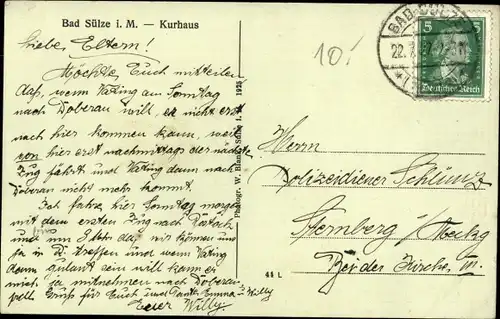 Bad Sülze i. M. — Kurhaus
Liebe Eltern!
Möchte Euch mitteilen
daß, wenn Vating am Sonntag
nach Doberan will, er nicht erst
nach hier kommen kann, weil
von hier erst nachmittags der nächste
Zug fährt und Vating dann nach
Doberan nicht mehr kommt.
Ich fahre hier Sonntag morgen
mit dem ersten Zug nach
und um 8 Uhr da wir können uns
ja in treffen und wenn Vating
dann will kann er
mich ja mitnehmen nach Doberan.
Gruß für Euch und Tante Emma u Willy
Euer Willy
Photogr. W. Blank, Sülze i. M. 1925
44 L
10.-
BAD SÜLZE
22.7.
5 5
Deutsches Reich
Herrn
Polizeidiener Schünz
Sternberg i/Meckg
Bei der Kirche III.